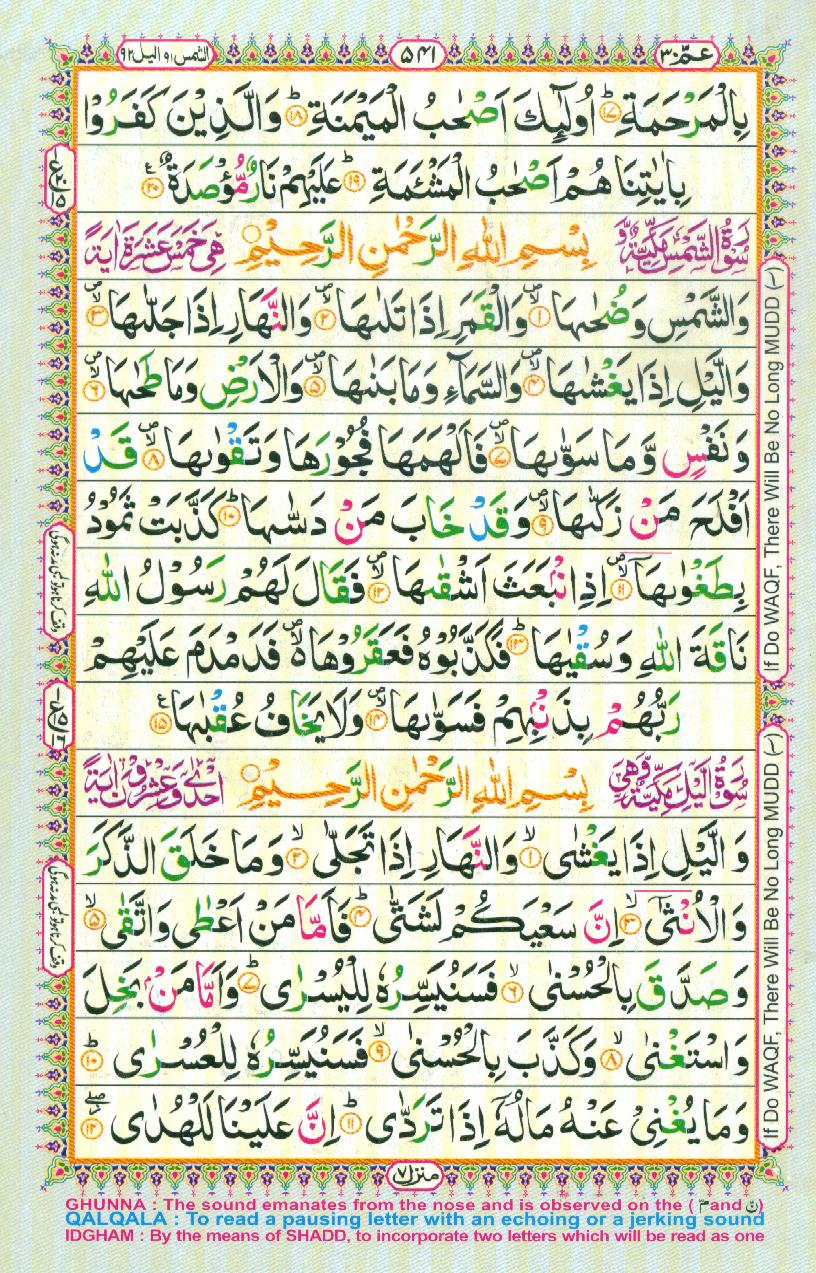 عمّ ٣٠
٥٤١
الشمس ٩١ و اليل ٩٢
بِالْمَرْحَمَةِ ؕ‏﴿۱۷﴾ اُولٰٓئِكَ اَصْحٰبُ الْمَيْمَنَةِ ؕ‏﴿۱۸﴾ وَالَّذِيْنَ كَفَرُوْا
بِاٰيٰتِنَا هُمْ اَصْحٰبُ الْمَشْئَمَةِ ؕ‏﴿۱۹﴾ عَلَيْهِمْ نَارٌ مُّؤْصَدَةٌ‏﴿۲۰﴾
سُوْرَةُ الشَّمْسِ مَكِّيَّةٌ وَّ بِسْمِ اللهِ الرَّحْمٰنِ الرَّحِيْمِ هِيَ خَمْسَ عَشْرَةَ اٰيَةً
وَالشَّمْسِ وَضُحٰىهَا ۙ‏﴿۱﴾ وَالْقَمَرِ اِذَا تَلٰىهَا ۙ‏﴿۲﴾ وَالنَّهَارِ اِذَا جَلّٰىهَا ۙ‏﴿۳﴾
وَالَّيْلِ اِذَا يَغْشٰىهَا ۙ‏﴿۴﴾ وَالسَّمَآءِ وَمَا بَنٰىهَا ۙ‏﴿۵﴾ وَالْاَرْضِ وَمَا طَحٰىهَا ۙ‏﴿۶﴾
وَنَفْسٍ وَّمَا سَوّٰىهَا ۙ‏﴿۷﴾ فَاَلْهَمَهَا فُجُوْرَهَا وَتَقْوٰىهَا ۙ‏﴿۸﴾ قَدْ
اَفْلَحَ مَنْ زَكّٰىهَا ۙ‏﴿۹﴾ وَقَدْ خَابَ مَنْ دَسّٰىهَا ؕ‏﴿۱۰﴾ كَذَّبَتْ ثَمُوْدُ
بِطَغْوٰىهَا ۙ‏﴿۱۱﴾ اِذِ انْۢبَعَثَ اَشْقٰىهَا ۙ‏﴿۱۲﴾ فَقَالَ لَهُمْ رَسُوْلُ اللهِ
نَاقَةَ اللهِ وَسُقْيٰهَا ؕ‏﴿۱۳﴾ فَكَذَّبُوْهُ فَعَقَرُوْهَا ۙ۬ فَدَمْدَمَ عَلَيْهِمْ
رَبُّهُمْ بِذَنْۢبِهِمْ فَسَوّٰىهَا ۙ‏﴿۱۴﴾ وَلَا يَخَافُ عُقْبٰهَا‏﴿۱۵﴾
سُوْرَةُ الَّيْلِ مَكِّيَّةٌ وَّهِيَ بِسْمِ اللهِ الرَّحْمٰنِ الرَّحِيْمِ اِحْدٰى وَعِشْرُوْنَ اٰيَةً
وَالَّيْلِ اِذَا يَغْشٰى ۙ‏﴿۱﴾ وَالنَّهَارِ اِذَا تَجَلّٰى ۙ‏﴿۲﴾ وَمَا خَلَقَ الذَّكَرَ
وَالْاُنْثٰٓى ۙ‏﴿۳﴾ اِنَّ سَعْيَكُمْ لَشَتّٰى ؕ‏﴿۴﴾ فَاَمَّا مَنْ اَعْطٰى وَاتَّقٰى ۙ‏﴿۵﴾
وَصَدَّقَ بِالْحُسْنٰى ۙ‏﴿۶﴾ فَسَنُيَسِّرُهٗ لِلْيُسْرٰى ؕ‏﴿۷﴾ وَاَمَّا مَنْۢ بَخِلَ
وَاسْتَغْنٰى ۙ‏﴿۸﴾ وَكَذَّبَ بِالْحُسْنٰى ۙ‏﴿۹﴾ فَسَنُيَسِّرُهٗ لِلْعُسْرٰى ؕ‏﴿۱۰﴾
وَمَا يُغْنِىْ عَنْهُ مَالُهٗۤ اِذَا تَرَدّٰى ؕ‏﴿۱۱﴾ اِنَّ عَلَيْنَا لَلْهُدٰى ۖ‏﴿۱۲﴾
If Do WAQF, There Will Be No Long MUDD (~)
If Do WAQF, There Will Be No Long MUDD (~)
منزل ٧
GHUNNA : The sound emanates from the nose and is observed on the ( مّ and نّ )
QALQALA : To read a pausing letter with an echoing or a jerking sound
IDGHAM : By the means of SHADD, to incorporate two letters which will be read as one